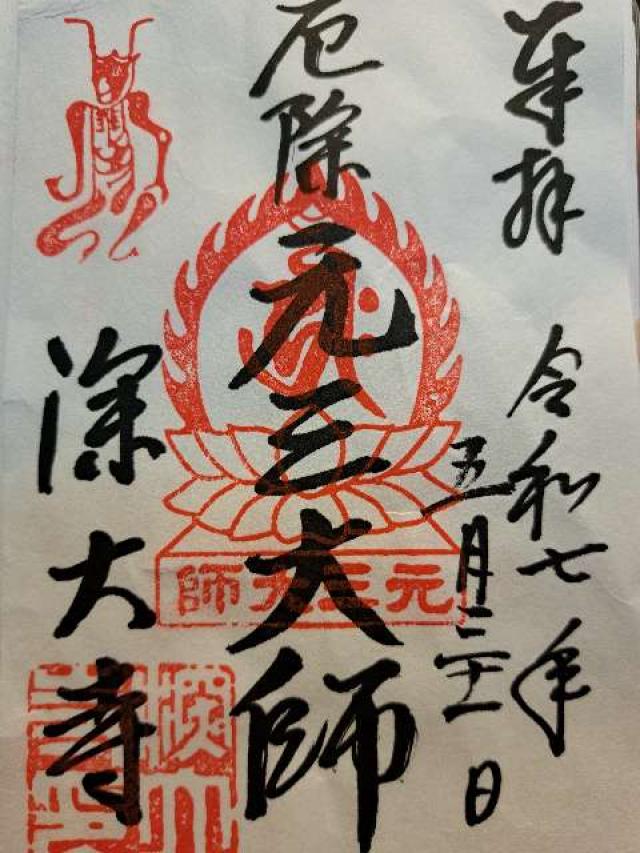 奉拝
令和七年
五月二十一日
厄除
元三大師
深大寺
元三大師